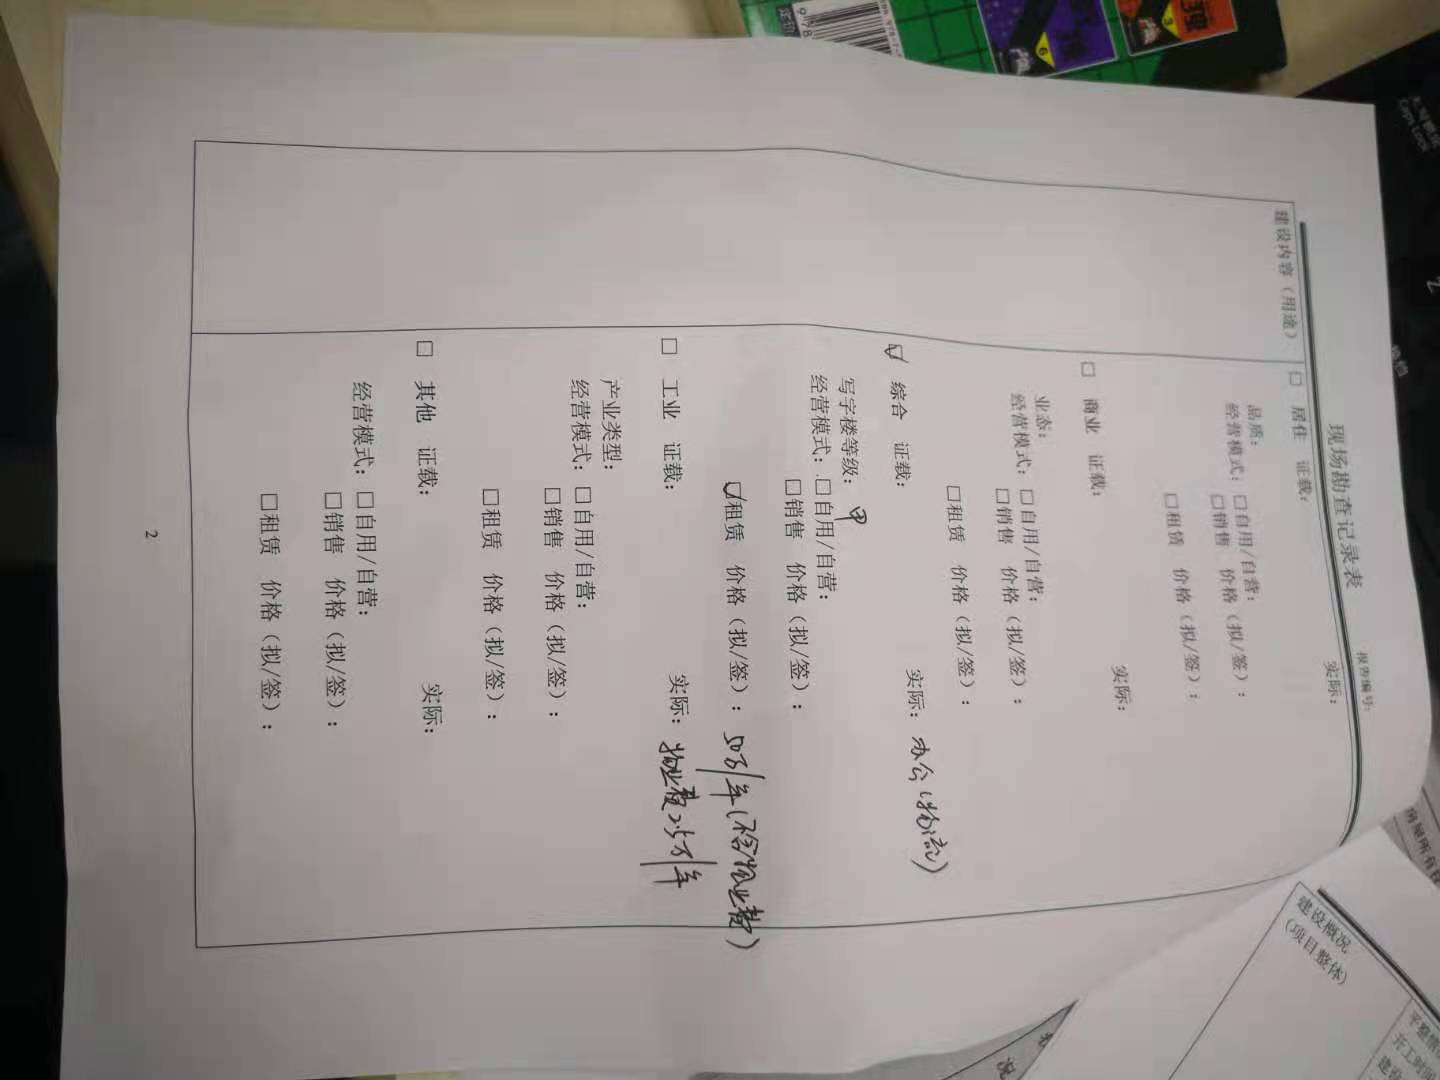 现场勘查记录表
报告编号:
建设内容（用途）
□ 居住 证载: 实际:
品质:
经营模式: □自用/自营:
□销售 价格（拟/签）:
□租赁 价格（拟/签）:
□ 商业 证载: 实际:
业态:
经营模式: □自用/自营:
□销售 价格（拟/签）:
□租赁 价格（拟/签）:
☑ 综合 证载: 实际: 办公(物流)
写字楼等级: 甲
经营模式: □自用/自营:
□销售 价格（拟/签）:
☑租赁 价格（拟/签）: 50万/年(不含物业费)
物业费2.5万/年
□ 工业 证载: 实际:
产业类型:
经营模式: □自用/自营:
□销售 价格（拟/签）:
□租赁 价格（拟/签）:
□ 其他 证载: 实际:
经营模式: □自用/自营:
□销售 价格（拟/签）:
□租赁 价格（拟/签）:
2
建设概况
(项目整体)
开工时间
建设
房屋所有权
况
Caps Lock
Z
6
3